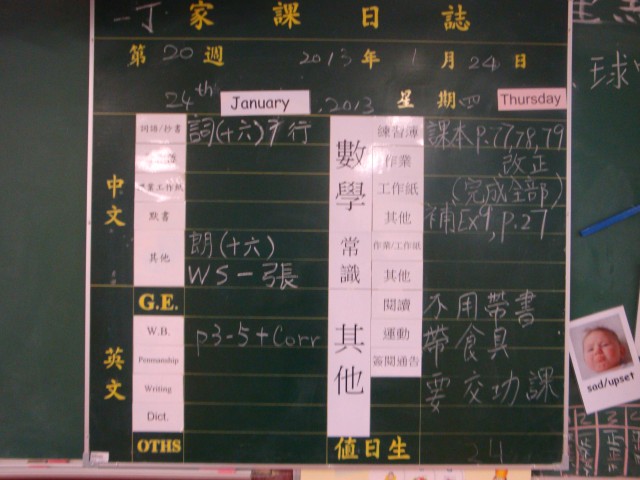 一丁 家課日誌
第20週 2013年1月24日
24th January, 2013 星期四 Thursday
中文
詞語/抄書 詞(十六)
默書
其他 朗(十六)
WS一張
G.E.
英文
W.B. p3-5+Corr
Penmanship
Writing
Dict.
OTHS
數學
練習簿 課本P.77,78,79
作業 改正
工作紙 (完成全部)
其他 補Ex9, p.27
常識
作業/工作紙
其他
其他
閱讀 不用帶書
運動 帶食具
簽閱通告
要交功課
值日生 24
球
sad/upset